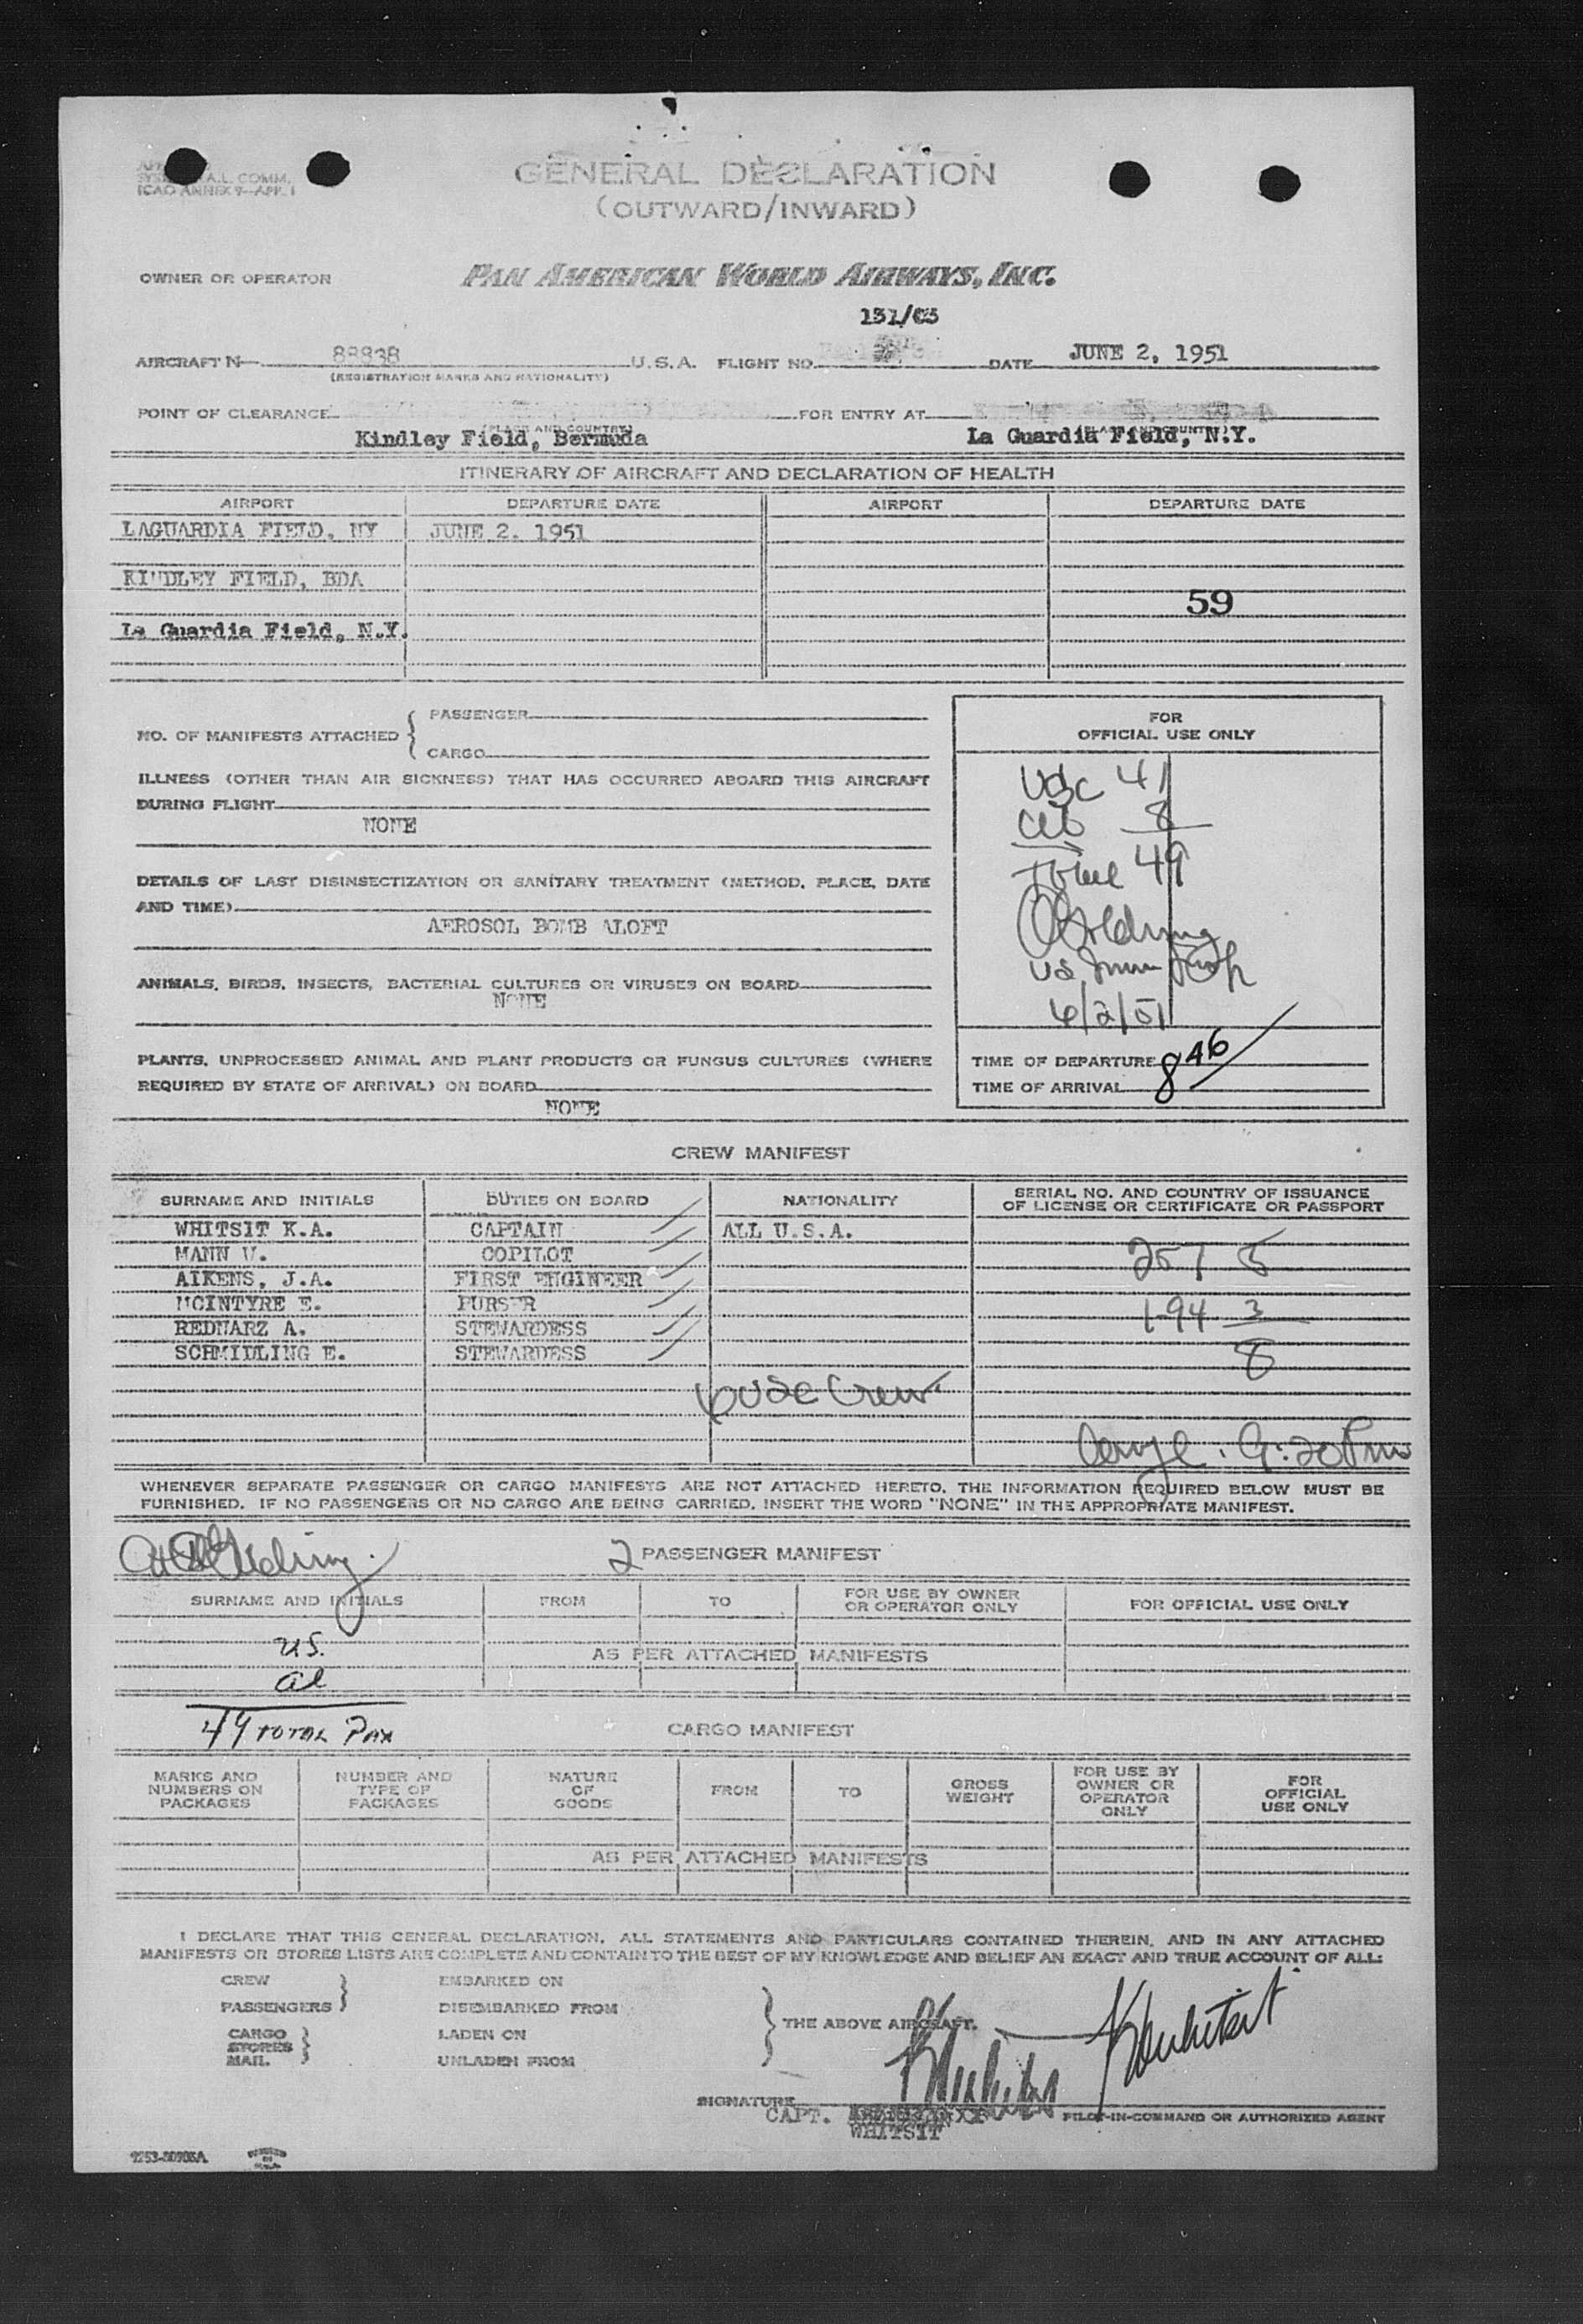 A.L. COMM.
ICAO ANNEX 9—APP. 1
GENERAL DECLARATION
(OUTWARD/INWARD)
OWNER OR OPERATOR PAN AMERICAN WORLD AIRWAYS, INC.
131/03
AIRCRAFT N— 88838 U.S.A. FLIGHT NO. DATE JUNE 2, 1951
(REGISTRATION MARKS AND NATIONALITY)
POINT OF CLEARANCE FOR ENTRY AT
(PLACE AND COUNTRY)
Kindley Field, Bermuda La Guardia Field, N.Y.
ITINERARY OF AIRCRAFT AND DECLARATION OF HEALTH
AIRPORT DEPARTURE DATE AIRPORT DEPARTURE DATE
LAGUARDIA FIELD, NY JUNE 2, 1951
KINDLEY FIELD, BDA
59
La Guardia Field, N.Y.
NO. OF MANIFESTS ATTACHED { PASSENGER
CARGO
ILLNESS (OTHER THAN AIR SICKNESS) THAT HAS OCCURRED ABOARD THIS AIRCRAFT
DURING FLIGHT
NONE
DETAILS OF LAST DISINSECTIZATION OR SANITARY TREATMENT (METHOD, PLACE, DATE
AND TIME)
AEROSOL BOMB ALOFT
ANIMALS, BIRDS, INSECTS, BACTERIAL CULTURES OR VIRUSES ON BOARD
NONE
PLANTS, UNPROCESSED ANIMAL AND PLANT PRODUCTS OR FUNGUS CULTURES (WHERE
REQUIRED BY STATE OF ARRIVAL) ON BOARD
NONE
FOR
OFFICIAL USE ONLY
USC 41
8
Total 49
US Immn Insp
6/2/51
TIME OF DEPARTURE
TIME OF ARRIVAL 846
CREW MANIFEST
SURNAME AND INITIALS DUTIES ON BOARD NATIONALITY SERIAL NO. AND COUNTRY OF ISSUANCE
OF LICENSE OR CERTIFICATE OR PASSPORT
WHITSIT K.A. CAPTAIN ALL U.S.A.
MANN V. COPILOT 257 5
AIKENS, J.A. FIRST ENGINEER
MCINTYRE E. PURSER 1-94 3
REDNARZ A. STEWARDESS
SCHMIDLING E. STEWARDESS 8
6 USC Crew
9:20 Pm
WHENEVER SEPARATE PASSENGER OR CARGO MANIFESTS ARE NOT ATTACHED HERETO, THE INFORMATION REQUIRED BELOW MUST BE
FURNISHED. IF NO PASSENGERS OR NO CARGO ARE BEING CARRIED, INSERT THE WORD "NONE" IN THE APPROPRIATE MANIFEST.
2 PASSENGER MANIFEST
SURNAME AND INITIALS FROM TO FOR USE BY OWNER
OR OPERATOR ONLY FOR OFFICIAL USE ONLY
US.
AS PER ATTACHED MANIFESTS
al
49 TOTAL PAX
CARGO MANIFEST
MARKS AND
NUMBERS ON
PACKAGES NUMBER AND
TYPE OF
PACKAGES NATURE
OF
GOODS FROM TO GROSS
WEIGHT FOR USE BY
OWNER OR
OPERATOR
ONLY FOR
OFFICIAL
USE ONLY
AS PER ATTACHED MANIFESTS
I DECLARE THAT THIS GENERAL DECLARATION, ALL STATEMENTS AND PARTICULARS CONTAINED THEREIN, AND IN ANY ATTACHED
MANIFESTS OR STORES LISTS ARE COMPLETE AND CONTAIN TO THE BEST OF MY KNOWLEDGE AND BELIEF AN EXACT AND TRUE ACCOUNT OF ALL:
CREW EMBARKED ON
PASSENGERS } DISEMBARKED FROM
THE ABOVE AIRCRAFT.
CARGO LADEN ON
STORES }
MAIL UNLADEN FROM
KWhitsit
SIGNATURE
CAPT. PILOT-IN-COMMAND OR AUTHORIZED AGENT
WHITSIT